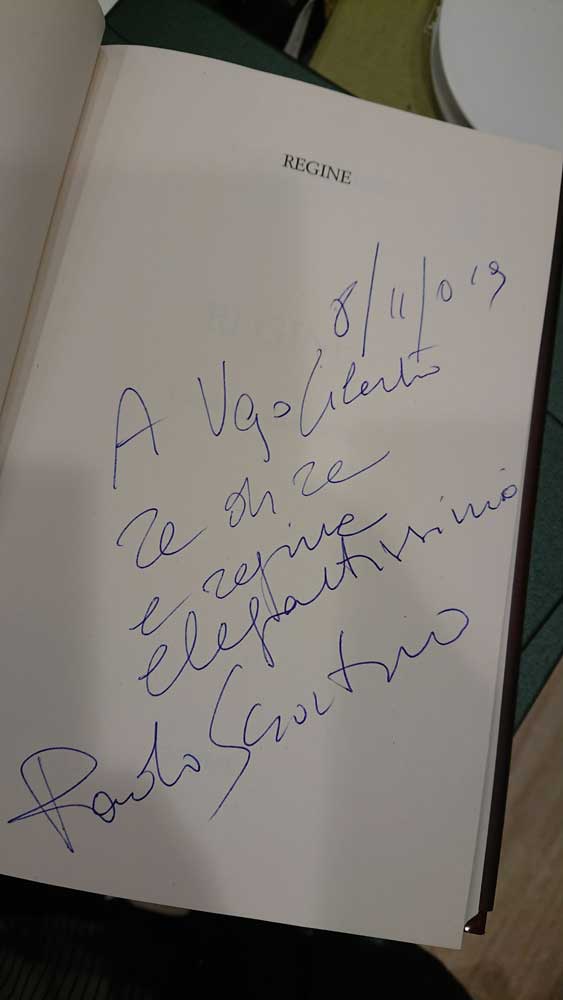 REGINE
8/11/019
A Ugo Cilento
re di re
e regine
elegantissimo
Paolo Sciortino